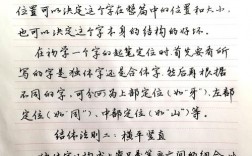 位置可以决定这个字在整篇中的位置和大小,
也可以决定这个字本身的结构的好坏。
在初学一个字的起笔定位时,首先要看所
写的字是独体字还是合体字,然后再根据
不同的字,可分为上部定位(如"守"),左部
定位(如"同"),中部定位(如"山")等。
结体法则二:横平竖直